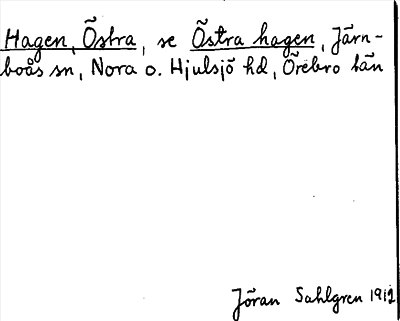 Hagen, Östra, se Östra hagen, Järn-
boås sn, Nora o. Hjulsjö hd, Örebro län
Jöran Sahlgren 1912